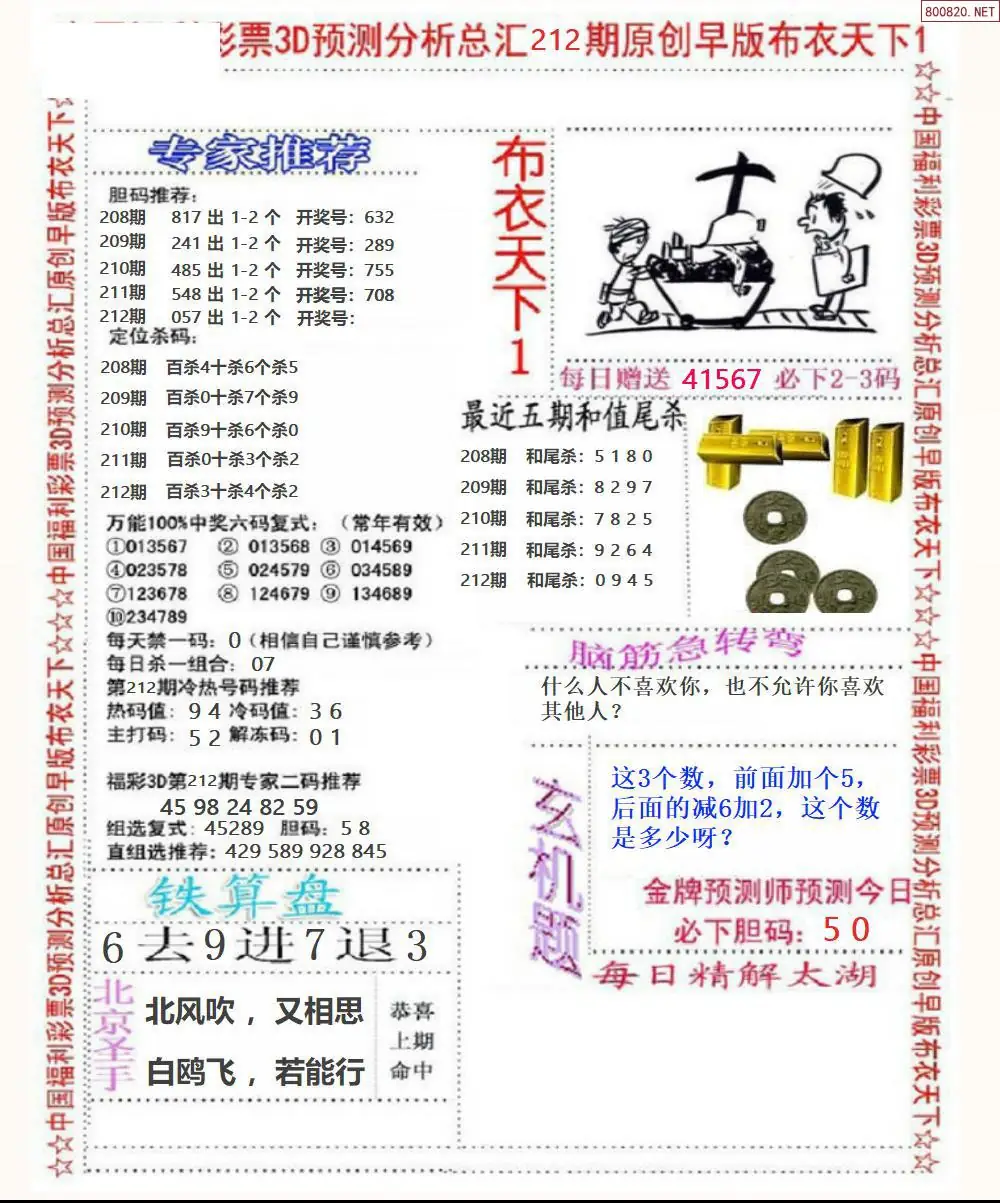 800820.NET
彩票3D预测分析总汇212期原创早版布衣天下1
☆中国福利彩票3D预测分析总汇原创早版布衣天下☆☆☆中国福利彩票3D预测分析总汇原创早版布衣天下☆
专家推荐
胆码推荐:
208期 817 出 1-2 个 开奖号: 632
209期 241 出 1-2 个 开奖号: 289
210期 485 出 1-2 个 开奖号: 755
211期 548 出 1-2 个 开奖号: 708
212期 057 出 1-2 个 开奖号:
定位杀码:
208期 百杀4十杀6个杀5
209期 百杀0十杀7个杀9
210期 百杀9十杀6个杀0
211期 百杀0十杀3个杀2
212期 百杀3十杀4个杀2
万能100%中奖六码复式: (常年有效)
①013567 ② 013568 ③ 014569
④023578 ⑤ 024579 ⑥ 034589
⑦123678 ⑧ 124679 ⑨ 134689
⑩234789
每天禁一码: 0(相信自己谨慎参考)
每日杀一组合: 07
第212期冷热号码推荐
热码值: 9 4 冷码值: 3 6
主打码: 5 2 解冻码: 0 1
福彩3D第212期专家二码推荐
45 98 24 82 59
组选复式: 45289 胆码: 5 8
直组选推荐: 429 589 928 845
铁算盘
6去9进7退3
北京圣手
北风吹，又相思
白鸥飞，若能行
恭喜
上期
命中
布衣天下1
每日赠送 41567 必下2-3码
最近五期和值尾杀
208期 和尾杀: 5 1 8 0
209期 和尾杀: 8 2 9 7
210期 和尾杀: 7 8 2 5
211期 和尾杀: 9 2 6 4
212期 和尾杀: 0 9 4 5
脑筋急转弯
什么人不喜欢你，也不允许你喜欢
其他人？
玄机题
这3个数，前面加个5，
后面的减6加2，这个数
是多少呀？
金牌预测师预测今日
必下胆码: 5 0
每日精解太湖
☆☆中国福利彩票3D预测分析总汇原创早版布衣天下☆☆☆中国福利彩票3D预测分析总汇原创早版布衣天下☆☆